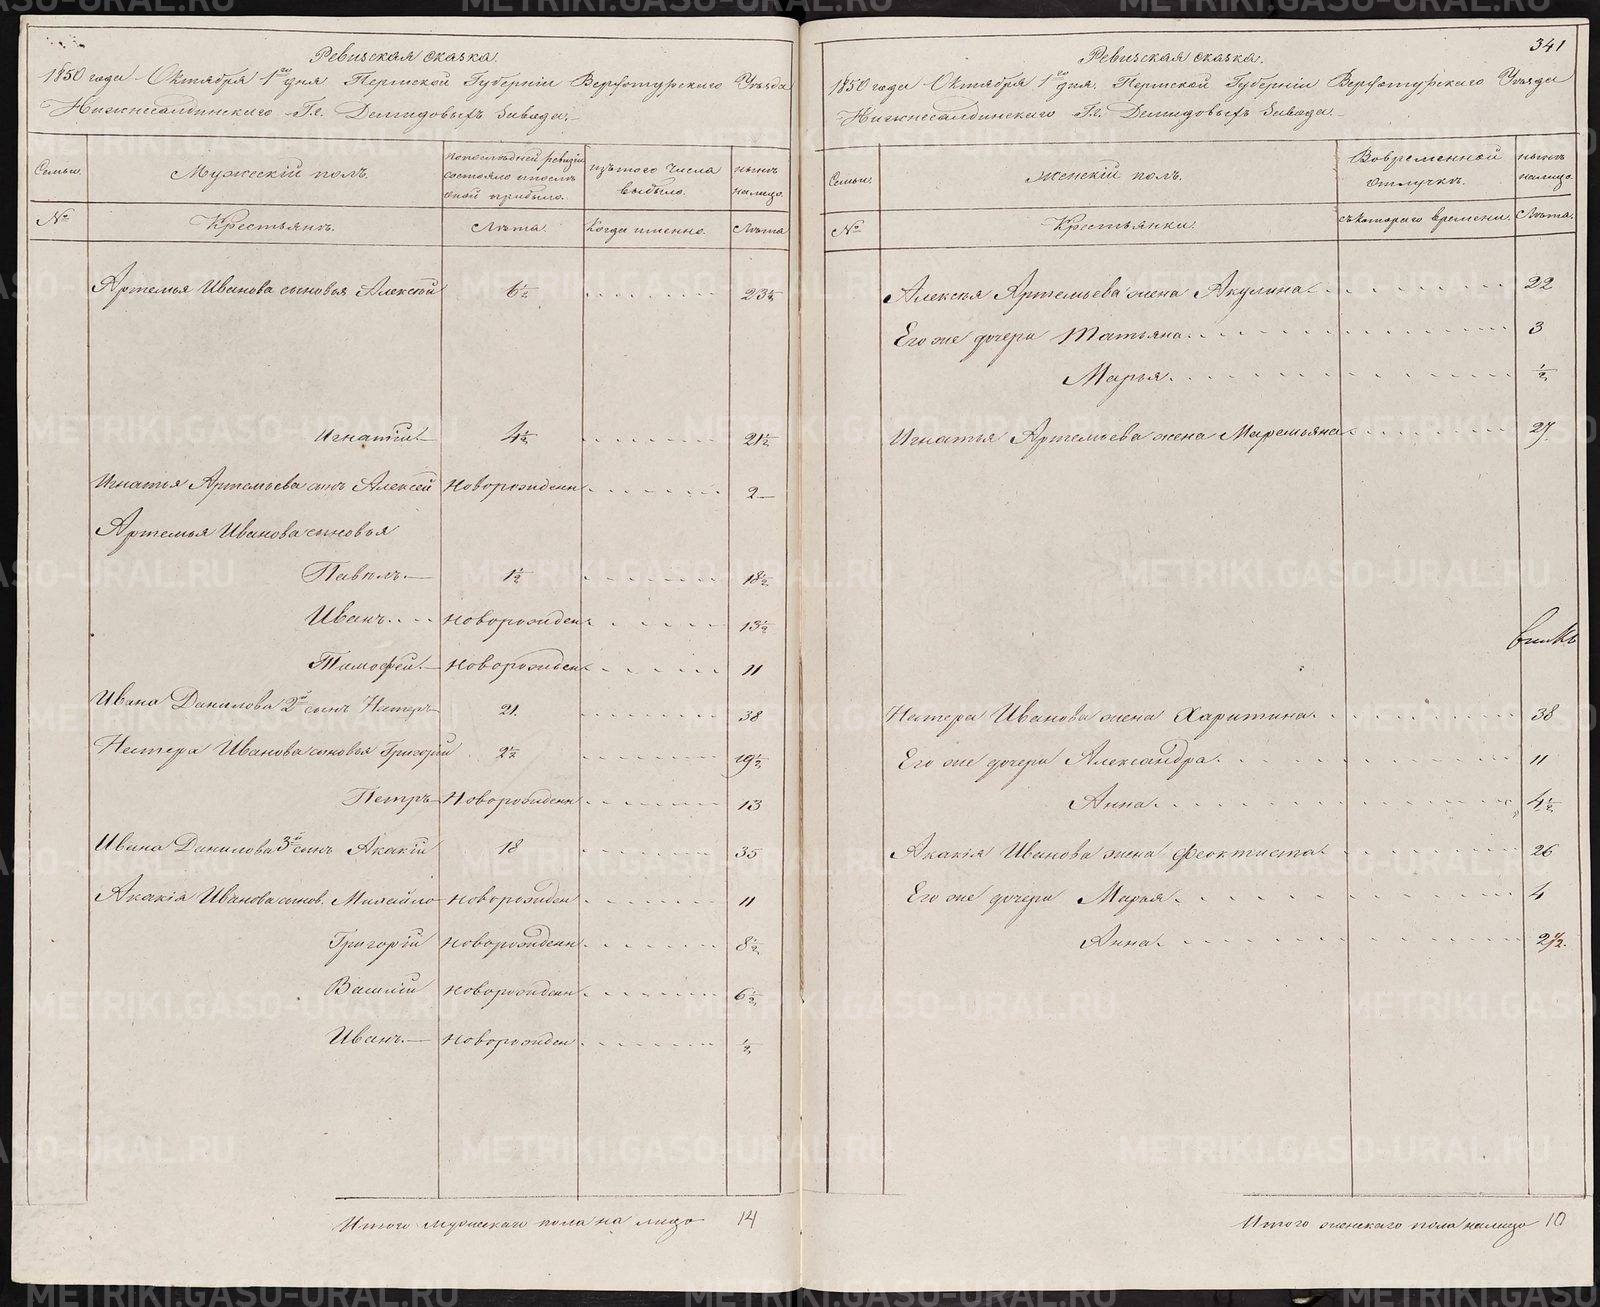 Ревизская сказка.
1850 года Октября 1го дня Пермской Губернии Верхотурскаго Уѣзда
Нижнесалдинскаго Гг. Демидовыхъ Завода.
Семьи. Мужескій полъ. По послѣдней ревизіи состояло и послѣ оной прибыло. Изъ того числа выбыло. Нынѣ на лицо.
№ Крестьянъ. Лѣта. Когда именно. Лѣта
Артемья Иванова сыновья Алексѣй 6½ 23½
Игнатій 4½ 21½
Игнатья Артемьева сынъ Алексей Новорожден 2
Артемья Иванова сыновья
Павелъ 1½ 18½
Иванъ Новорожден 13½
Тимофей Новорожден 11
Ивана Данилова 2й сынъ Нестеръ 21. 38
Нестера Иванова сыновья Григорій 2½ 19½
Петръ Новорожден 13
Ивана Данилова 3й сынъ Акакій 18 35
Акакія Иванова сынов. Михайло Новорожден 11
Григорій Новорожден 8½
Василій Новорожден 6½
Иванъ Новорожден ½
Итого мужескаго пола на лицо 14
341
Ревизская сказка.
1850 года Октября 1го дня. Пермской Губерніи Верхотурскаго Уѣзда
Нижнесалдинскаго Гг. Демидовыхъ Завода.
Семьи. Женскій полъ. Во временной отлучкѣ. Нынѣ на лицо.
№ Крестьянки. Съ котораго времени. Лѣта.
Алексѣя Артемьева жена Акулина 22
Его же дочери Татьяна 3
Марья ½
Игнатья Артемьева жена Маремьяна 27
Нестера Иванова жена Харитина 38
Его же дочери Александра 11
Анна 4½
Акакія Иванова жена Феоктиста 26
Его же дочери Марья 4
Анна
Итого женскаго пола на лицо 10
METRIKI.GASO-URAL.RU